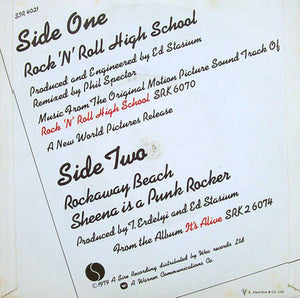 SIR 4021
Side One
Rock 'N' Roll High School
Produced and Engineered by Ed Stasium
Remixed by Phil Spector
Music From The Original Motion Picture Sound Track Of
Rock 'N' Roll High School SRK 6070
A New World Pictures Release
Side Two
Rockaway Beach
Sheena is a Punk Rocker
Produced by T. Erdelyi and Ed Stasium
From the Album It's Alive SRK 2 6074
© 1979 A Sire Recording distributed by Wea records Ltd
A Warner Communications Co.